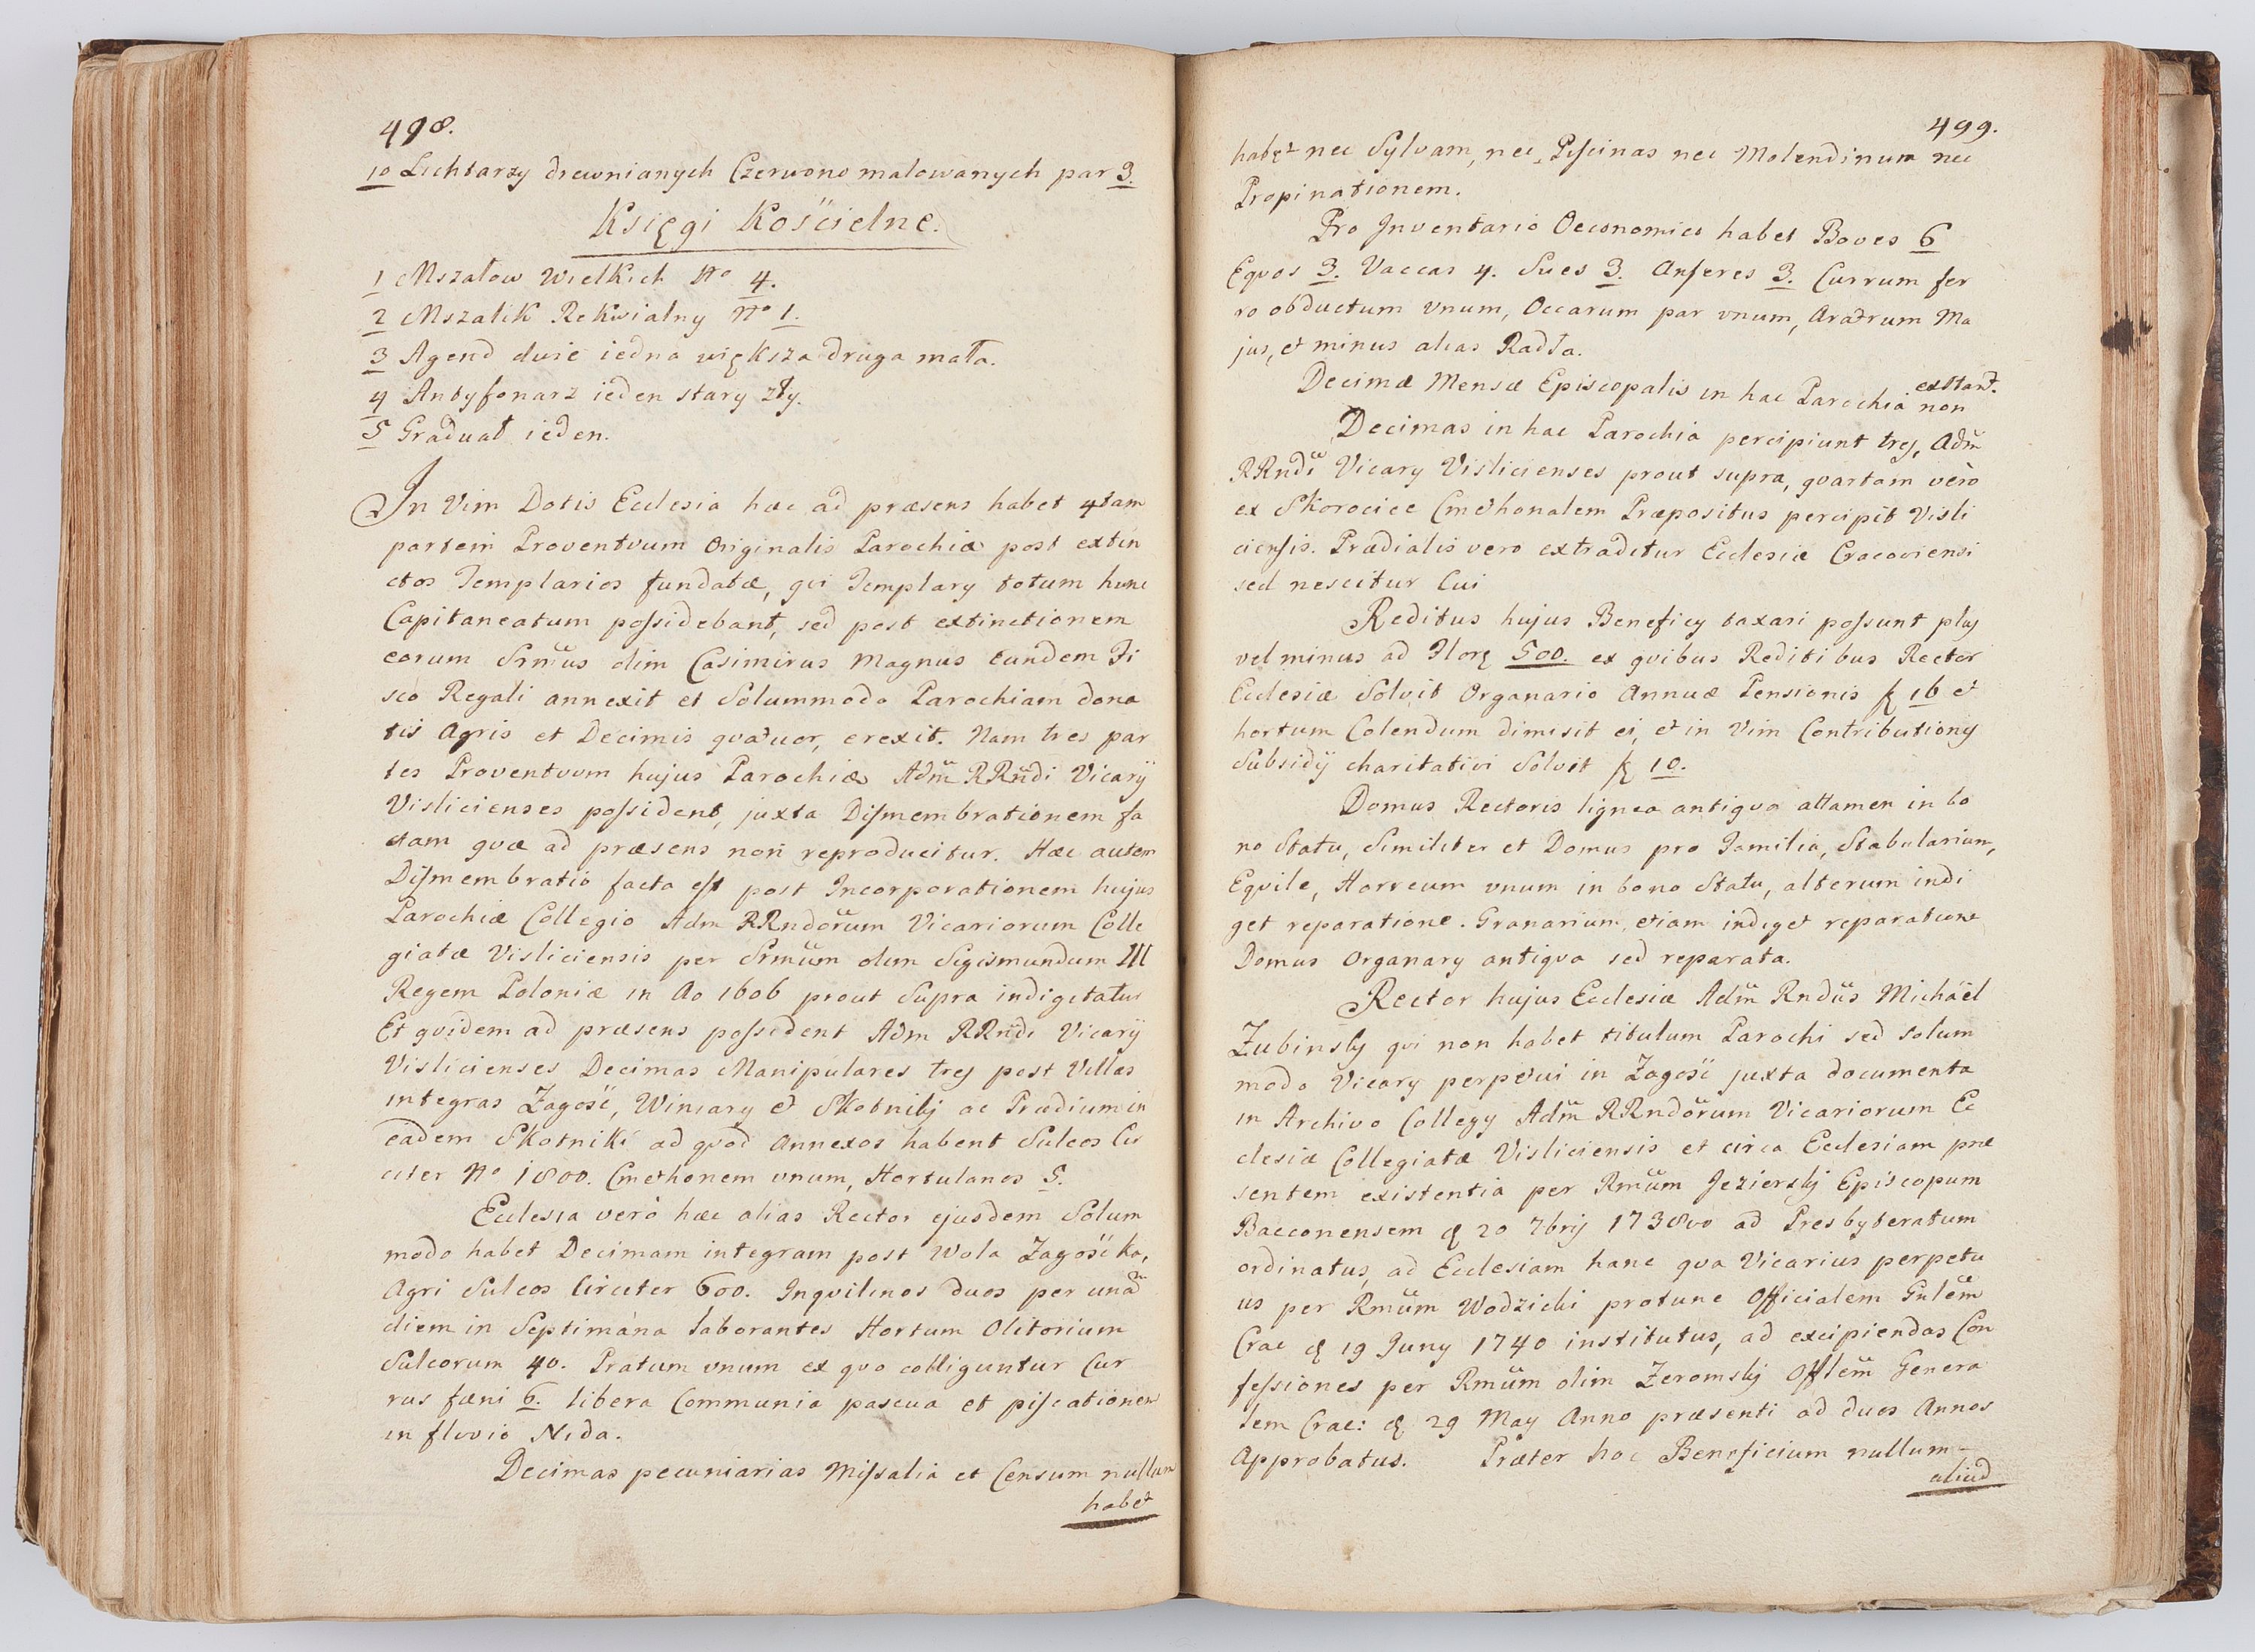 498.
10 Lichtarzy drewnianych Czerwono malowanych par 3.
Księgi Kościelne.
1 Mszałow Wielkich No 4.
2 Mszalik Rekwialny No 1.
3 Agend dwie iedna większa druga mała.
4 Antyfonarz ieden stary zły.
5 Graduał ieden.
In Vim Dotis Ecclesia hæc ad præsens habet 4tam
partem Proventuum Originalis Parochiæ post extin
ctos Templarios fundatæ, qvi Templary totum hunc
Capitaneatum possidebant, sed post extinctionem
eorum Srmus olim Casimirus Magnus eundem Fi
sco Regali annexit et Solummodo Parochiam dona
tis Agris et Decimis qvatuor, erexit. Nam tres par
tes Proventuum hujus Parochiæ Adm RRndi Vicarÿ
Vislicienses possident, juxta Dismembrationem fa
ctam qvæ ad præsens non reproducitur. Hæc autem
Dismembratio facta est post Incorporationem hujus
Parochiæ Collegio Adm RRndorum Vicariorum Colle
giatæ Visliciensis per Srmum olim Sigismundum III
Regem Poloniæ in Ao 1606 prout Supra indigitatur
Et qvidem ad præsens possident Adm RRndi Vicarÿ
Vislicienses Decimas Manipulares tres post Villas
integras Zagość, Winiary et Skotniki ac Prædium in
eadem Skotniki ad qvod Annexos habent Sulcos Cir
citer No 1800. Cmethonem unum, Hortulanos 5.
Ecclesia verò hæc alias Rector ejusdem Solum
modo habet Decimam integram post Wola Zagoścka,
Agri Sulcos Circiter 600. Inqvilinos duos per unad
diem in Septimána laborantes Hortum Olitorium
Sulcorum 40. Pratum unum ex qvo colliguntur Cur
rus fæni 6. libera Communia pascua et piscationem
in fluvio Nida.
Decimas pecuniarias Missalia et Censum nullum
habet
499.
habet nec Sylvam, nec Piscinas nec Molendinum nec
Propinationem.
Pro Inventario Oeconomico habet Boves 6
Eqvos 3. Vaccas 4. Sues 3. Anseres 3. Currum fer
ro obductum unum, Occarum par unum, Aratrum Ma
jus, et minus alias Radła.
Decimæ Mensæ Episcopalis in hac Parochia non exstant.
Decimas in hac Parochia percipiunt tres, Adm
RRndi Vicary Vislicienses prout supra, qvartam verò
ex Skorocice Cmethonalem Præpositus percipit Visli
ciensis. Prædialis vero extraditur Ecclesiæ Cracoviensi
sed nescitur Cui
Reditus hujus Beneficy taxari possunt plus
vel minus ad Flor 500. ex qvibus Reditibus Rector
Ecclesiæ Solvit Organario Annuæ Pensionis f 16 et
hortum Colendum dimisit ei, et in Vim Contributionis
Subsidÿ charitativi Solvit f 10.
Domus Rectoris lignea antiqva attamen in bo
no Statu, Similiter et Domus pro Familia, Stabularium,
Eqvile, Horreum unum in bono Statu, alterum indi
get reparatione. Granarium, etiam indiget reparatione
Domus Organary antiqva sed reparata.
Rector hujus Ecclesiæ Adm Rndus Michaël
Zubinsky qvi non habet titulum Parochi sed solum
modo Vicary perpetui in Zagość juxta documenta
in Archivo Collegy Adm RRndorum Vicariorum Ec
clesiæ Collegiatæ Visliciensis et circa Ecclesiam præ
sentem existentia per Rmum Jeziersky Episcopum
Bacconensem 20 7bris 1738vo ad Presbyteratum
ordinatus, ad Ecclesiam hanc qva Vicarius perpetu
us per Rmum Wodzicki protunc Officialem Gnlem
Crac 19 Juny 1740 institutus, ad excipiendas Con
fessiones per Rmum olim Zeromsky Offlem Genera
lem Crac: 29 May Anno præsenti ad duos Annos
Approbatus. Præter hoc Beneficium nullum
aliud